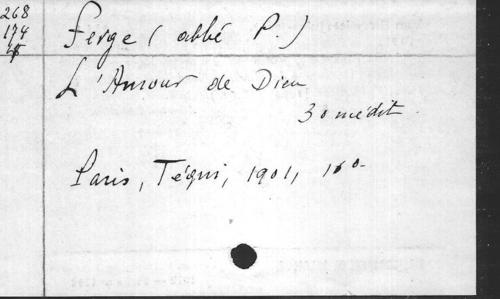 268
174
Ferge (abbé P.)
L'Amour de Dieu
30 médit.
Paris, Téqui, 1901, 16°